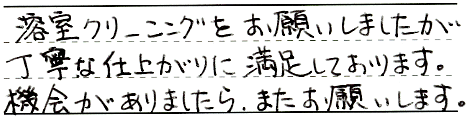 浴室クリーニングをお願いしましたが
丁寧な仕上がりに満足しております。
機会がありましたら、またお願いします。